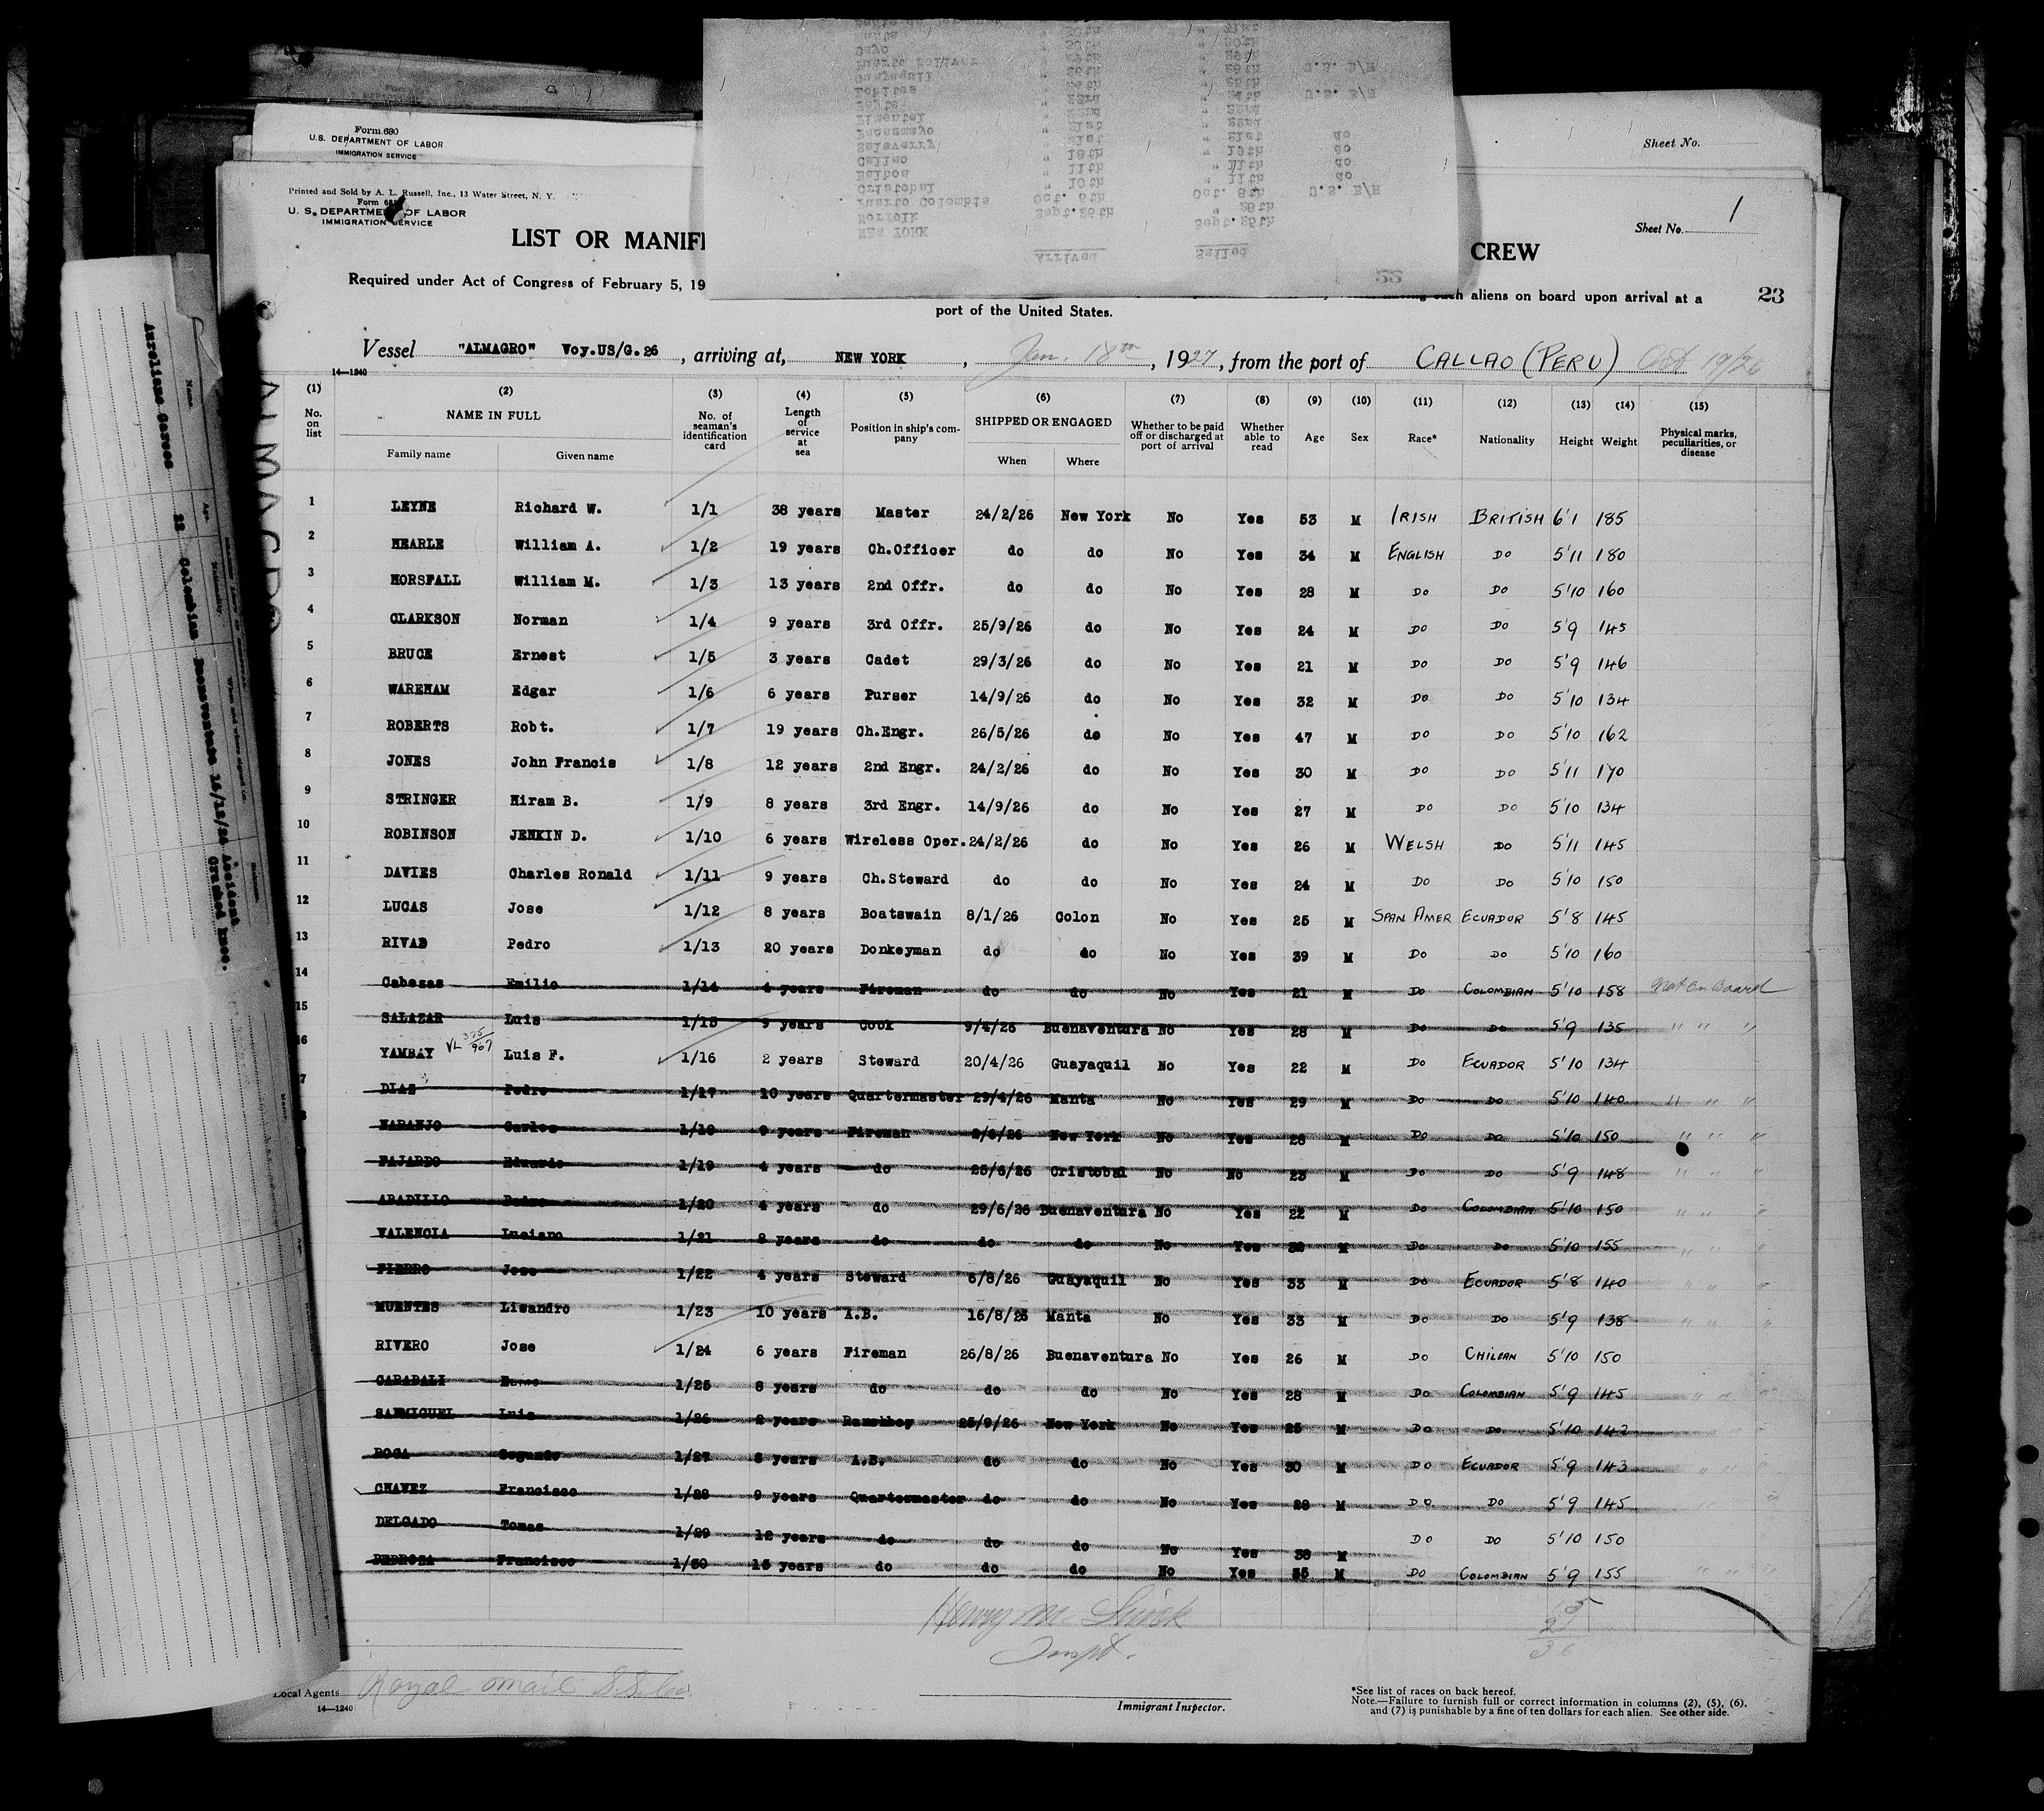 Form 680
U.S. DEPARTMENT OF LABOR
IMMIGRATION SERVICE
Sheet No.
Printed and Sold by A. L. Russell, Inc., 13 Water Street, N. Y.
Form 680
U. S. DEPARTMENT OF LABOR
IMMIGRATION SERVICE
Sheet No. 1
LIST OR MANIF
CREW
Required under Act of Congress of February 5, 19
such aliens on board upon arrival at a
23
port of the United States.
Vessel "ALMAGRO" Voy.US/G.26, arriving at, NEW YORK, Jan. 18th, 1927, from the port of CALLAO (PERU) Oct 19/26
14—1240
(1) (2) (3) (4) (5) (6) (7) (8) (9) (10) (11) (12) (13) (14) (15)
No. on list NAME IN FULL No. of seaman's identification card Length of service at sea Position in ship's company SHIPPED OR ENGAGED Whether to be paid off or discharged at port of arrival Whether able to read Age Sex Race* Nationality Height Weight Physical marks, peculiarities, or disease
Family name Given name When Where
1 LEYNE Richard W. 1/1 38 years Master 24/2/26 New York No Yes 53 M IRISH BRITISH 6'1 185
2 HEARLE William A. 1/2 19 years Ch.Officer do do No Yes 34 M ENGLISH DO 5'11 180
3 HORSFALL William M. 1/3 13 years 2nd Offr. do do No Yes 28 M DO DO 5'10 160
4 CLARKSON Norman 1/4 9 years 3rd Offr. 25/9/26 do No Yes 24 M DO DO 5'9 145
5 BRUCE Ernest 1/5 3 years Cadet 29/3/26 do No Yes 21 M DO DO 5'9 146
6 WAREHAM Edgar 1/6 6 years Purser 14/9/26 do No Yes 32 M DO DO 5'10 134
7 ROBERTS Robt. 1/7 19 years Ch.Engr. 26/5/26 do No Yes 47 M DO DO 5'10 162
8 JONES John Francis 1/8 12 years 2nd Engr. 24/2/26 do No Yes 30 M DO DO 5'11 170
9 STRINGER Hiram B. 1/9 8 years 3rd Engr. 14/9/26 do No Yes 27 M DO DO 5'10 134
10 ROBINSON JENKIN D. 1/10 6 years Wireless Oper. 24/2/26 do No Yes 26 M WELSH DO 5'11 145
11 DAVIES Charles Ronald 1/11 9 years Ch.Steward do do No Yes 24 M DO DO 5'10 150
12 LUCAS Jose 1/12 8 years Boatswain 8/1/26 Colon No Yes 25 M SPAN AMER ECUADOR 5'8 145
13 RIVAD Pedro 1/13 20 years Donkeyman do do No Yes 39 M DO DO 5'10 160
14 Cabezas Emilio 1/14 4 years Fireman do do No Yes 21 M DO COLOMBIAN 5'10 158 Not on board
15 SALAZAR Luis 1/15 9 years Cook 9/4/26 Buenaventura No Yes 28 M DO DO 5'9 135 " " "
16 YAMBAY VL 375/907 Luis F. 1/16 2 years Steward 20/4/26 Guayaquil No Yes 22 M DO ECUADOR 5'10 134
7 DIAZ Pedro 1/17 10 years Quartermaster 29/4/26 Manta No Yes 29 M DO DO 5'10 140 " " "
8 NARANJO Carlos 1/18 9 years Fireman 2/6/26 New York No Yes 28 M DO DO 5'10 150 " " "
FAJARDO Eduardo 1/19 4 years do 25/6/26 Cristobal No No 23 M DO DO 5'9 148 " " "
ABADILLO Pedro 1/20 4 years do 29/6/26 Buenaventura No Yes 22 M DO COLOMBIAN 5'10 150 " " "
VALENCIA Luciano 1/21 8 years do do do No Yes M DO DO 5'10 155 " " "
FIERRO Jose 1/22 4 years Steward 6/8/26 Guayaquil No Yes 33 M DO ECUADOR 5'8 140 " " "
MUENTES Lisandro 1/23 10 years A.B. 16/8/26 Manta No Yes 33 M DO DO 5'9 138 " " "
RIVERO Jose 1/24 6 years Fireman 26/8/26 Buenaventura No Yes 26 M DO CHILEAN 5'10 150
CARABALI 1/25 8 years do do do No Yes 28 M DO COLOMBIAN 5'9 145 " " "
SANMIGUEL Luis 1/26 2 years Messboy 25/9/26 New York No Yes 25 M DO DO 5'10 142 " " "
ROCA Segundo 1/27 8 years A.B. do do No Yes 30 M DO ECUADOR 5'9 143 " " "
CHAVEZ Francisco 1/28 9 years Quartermaster do do No Yes 28 M DO DO 5'9 145 " " "
DELGADO Tomas 1/29 12 years do do do No Yes 38 M DO DO 5'10 150
PEDROZA Francisco 1/30 15 years do do do No Yes 35 M DO COLOMBIAN 5'9 155 " " "
Inspt.
Local Agents Royal Mail S.S.
14—1240
Immigrant Inspector.
*See list of races on back hereof.
Note.—Failure to furnish full or correct information in columns (2), (5), (6), and (7) is punishable by a fine of ten dollars for each alien. See other side.
Arrived Sailed
NEW YORK Sept.25th
Norfolk Sept.26th " 26th
Puerto Colombia Oct. 6th Oct. 8th U.S. B/H
Cristobal " 10th " 11th do
Balboa " 11th " 11th do
Callao " 18th " 19th do
Salaverry " 21st " 21st do
Pacasmayo " 21st
Pimentel " 22nd " 22nd
Aureliano Garces 22 Colombian Buenventura 16/12/26 Accident Crushed knee.
ALMAGRO